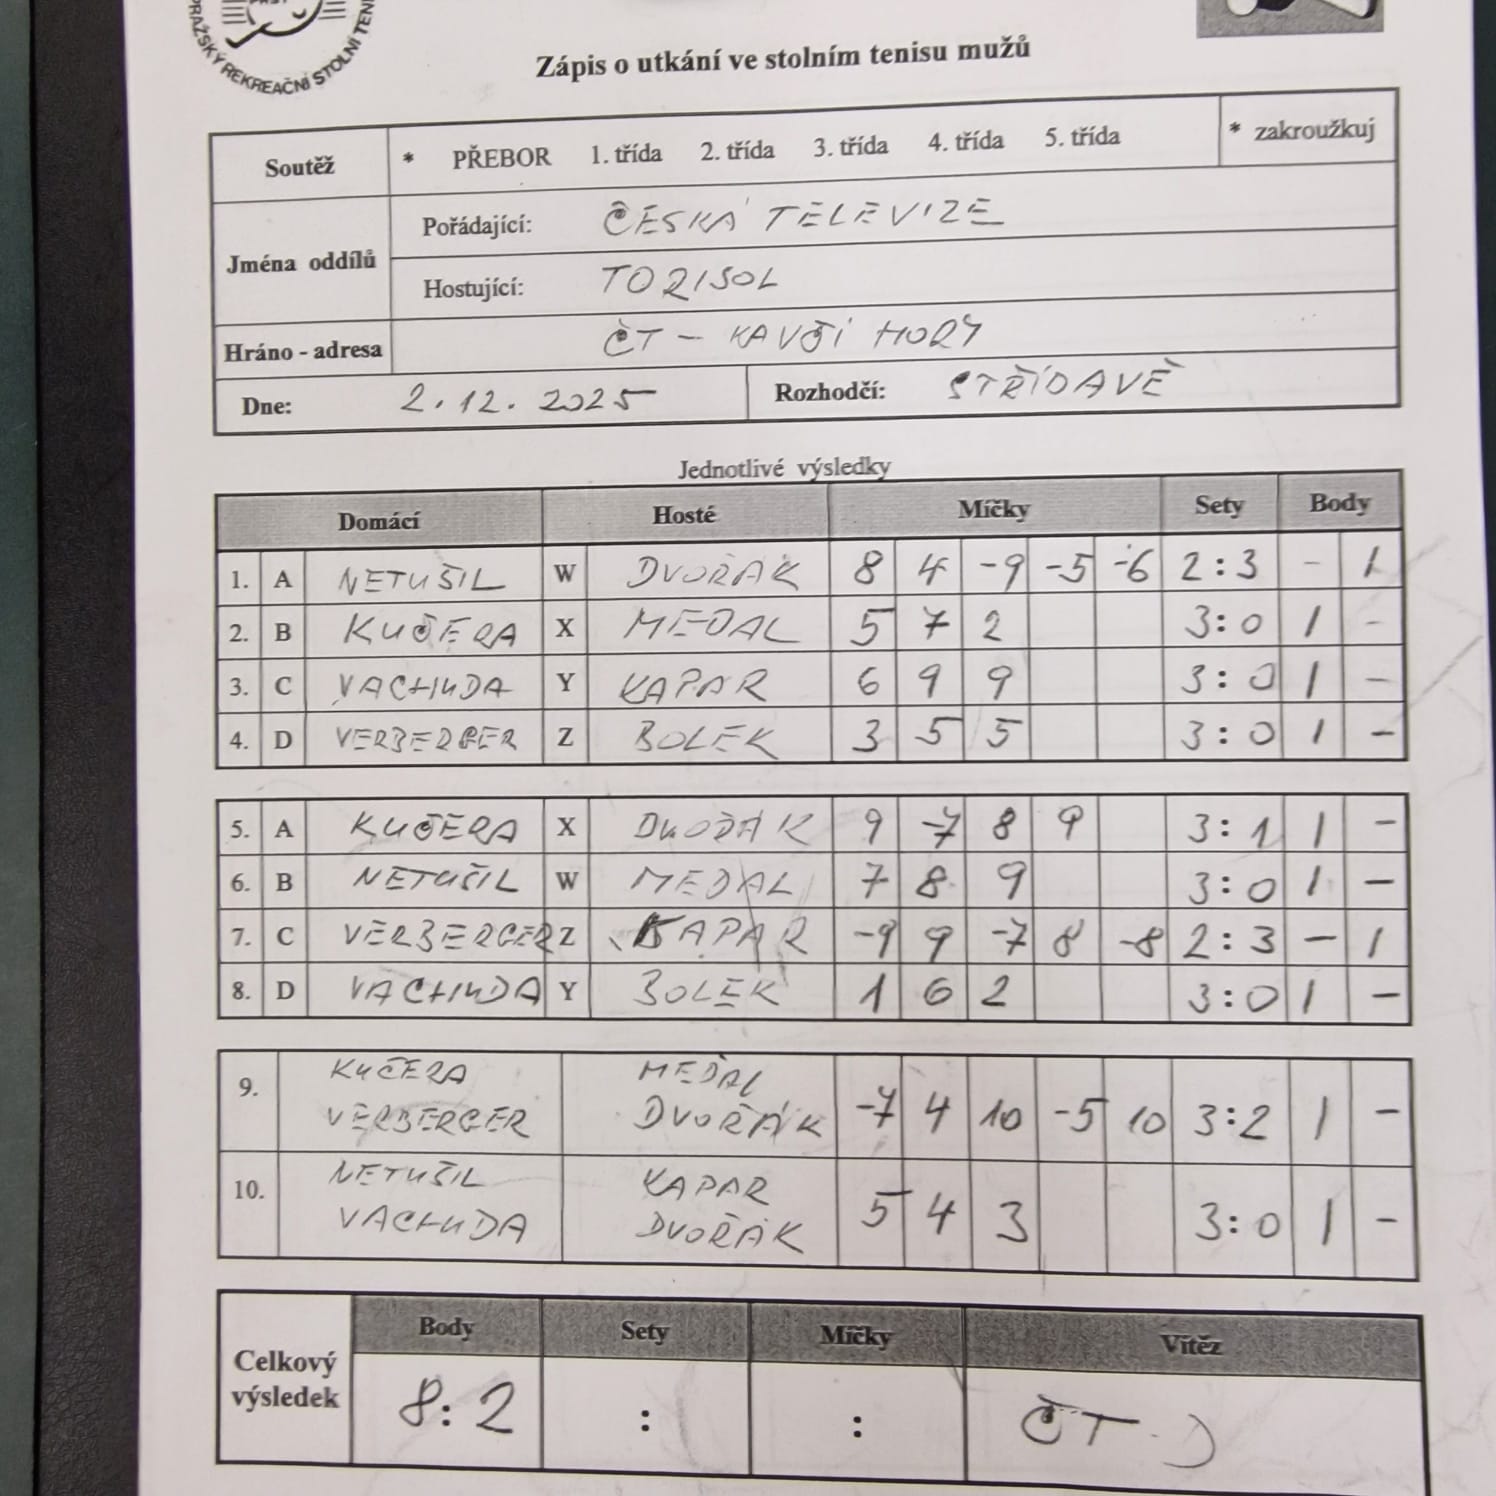 PRAŽSKÝ REKREAČNÍ STOLNÍ TENI
Zápis o utkání ve stolním tenisu mužů
Soutěž * PŘEBOR 1. třída 2. třída 3. třída 4. třída 5. třída * zakroužkuj
Jména oddílů
Pořádající: ČESKÁ TELEVIZE
Hostující: TORISOL
Hráno - adresa ČT - KAVČÍ HORY
Dne: 2.12.2025 Rozhodčí: STŘÍDAVĚ
Jednotlivé výsledky
Domácí Hosté Míčky Sety Body
1. A NETUŠIL W DVOŘÁK 8 4 -9 -5 -6 2:3 - 1
2. B KUČERA X MEDAL 5 7 2 3:0 1 -
3. C VACHUDA Y KAPAR 6 9 9 3:0 1 -
4. D VERBERGER Z BOLEK 3 5 5 3:0 1 -
5. A KUČERA X DVOŘÁK 9 -7 8 9 3:1 1 -
6. B NETUŠIL W MEDAL 7 8 9 3:0 1 -
7. C VERBERGER Z KAPAR -9 9 -7 8 -8 2:3 - 1
8. D VACHUDA Y BOLEK 1 6 2 3:0 1 -
9. KUČERA MEĎAL
VERBERGER DVOŘÁK -7 4 10 -5 10 3:2 1 -
10. NETUŠIL KAPAR
VACHUDA DVOŘÁK 5 4 3 3:0 1 -
Celkový výsledek
Body Sety Míčky Vítěz
8:2 : : ČT. D